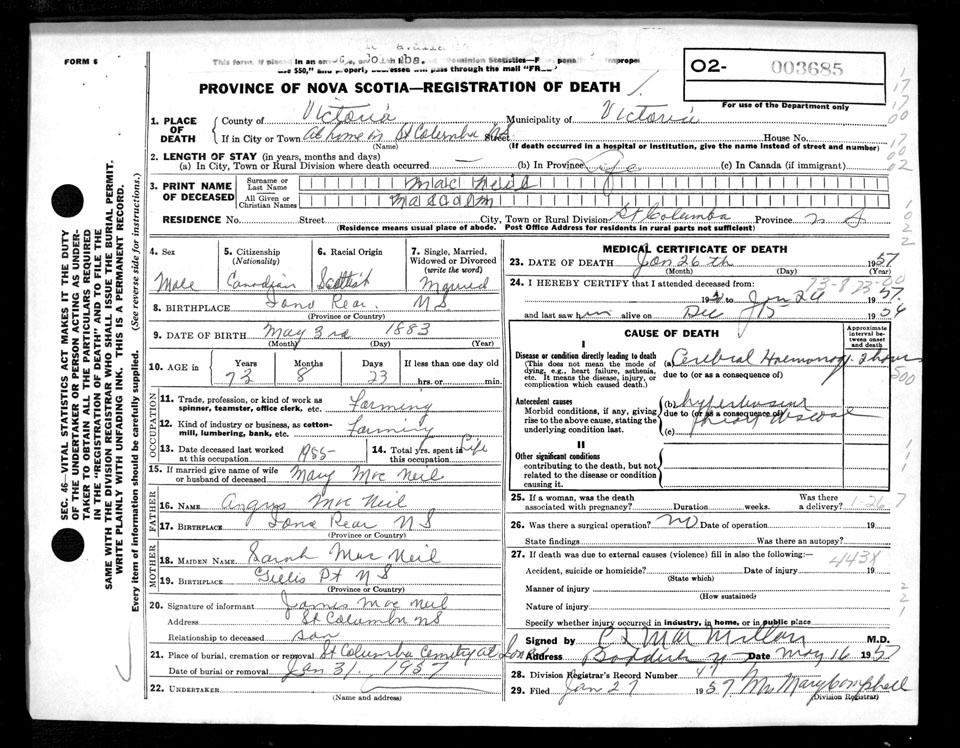 FORM 6
O2- 003685
PROVINCE OF NOVA SCOTIA—REGISTRATION OF DEATH
For use of the Department only
1. PLACE OF DEATH County of Victoria Municipality of Victoria
If in City or Town At home in St Columba Street NS House No.
(Name) (If death occurred in a hospital or institution, give the name instead of street and number)
2. LENGTH OF STAY (in years, months and days)
(a) In City, Town or Rural Division where death occurred — (b) In Province Life (c) In Canada (if immigrant)
3. PRINT NAME OF DECEASED Surname or Last Name Mac Neil
All Given or Christian Names Malcolm
RESIDENCE No. Street City, Town or Rural Division St Columba Province N S
(Residence means usual place of abode. Post Office Address for residents in rural parts not sufficient)
4. Sex 5. Citizenship (Nationality) 6. Racial Origin 7. Single, Married, Widowed or Divorced (write the word)
Male Canadian Scottish Married
8. BIRTHPLACE Iona Rear NS
(Province or Country)
9. DATE OF BIRTH May 3rd 1883
(Month) (Day) (Year)
10. AGE in Years Months Days If less than one day old
73 8 23 hrs. or min.
OCCUPATION
11. Trade, profession, or kind of work as spinner, teamster, office clerk, etc. Farming
12. Kind of industry or business, as cotton-mill, lumbering, bank, etc. Farming
13. Date deceased last worked at this occupation 1955 14. Total yrs. spent in this occupation Life
15. If married give name of wife or husband of deceased Mary Mac Neil
FATHER
16. NAME Angus Mac Neil
17. BIRTHPLACE Iona Rear NS
(Province or Country)
MOTHER
18. MAIDEN NAME Sarah Mac Neil
19. BIRTHPLACE Gillis Pt NS
(Province or Country)
20. Signature of informant James Mac Neil
Address St Columba NS
Relationship to deceased son
21. Place of burial, cremation or removal St Columba Cemetery at Iona
Date of burial or removal Jan 31. 1957
22. UNDERTAKER
(Name and address)
MEDICAL CERTIFICATE OF DEATH
23. DATE OF DEATH Jan 26 th 1957
(Month) (Day) (Year)
24. I HEREBY CERTIFY that I attended deceased from:
to Jan 26 1957
and last saw him alive on Dec 15 1956
CAUSE OF DEATH
Approximate interval between onset and death
I
Disease or condition directly leading to death (a) Cerebral Haemorrhage 2 hours
(This does not mean the mode of dying, e.g., heart failure, asthenia, etc. It means the disease, injury, or complication which caused death.) due to (or as a consequence of)
Antecedent causes (b) hypertensive
Morbid conditions, if any, giving rise to the above cause, stating the underlying condition last. due to (or as a consequence of) heart disease
(c)
II
Other significant conditions
contributing to the death, but not related to the disease or condition causing it.
25. If a woman, was the death associated with pregnancy? Duration weeks. Was there a delivery?
26. Was there a surgical operation? NO Date of operation 19
State findings Was there an autopsy?
27. If death was due to external causes (violence) fill in also the following:—
443X
Accident, suicide or homicide? Date of injury 19
(State which)
Manner of injury
(How sustained)
Nature of injury
Specify whether injury occurred in industry, in home, or in public place
Signed by C L MacMillan M.D.
Address Baddeck Date May 16 1957
28. Division Registrar's Record Number 47
29. Filed Jan 27 1957 Mrs Mary Campbell
(Division Registrar)
SEC. 46—VITAL STATISTICS ACT MAKES IT THE DUTY
OF THE UNDERTAKER OR PERSON ACTING AS UNDER-
TAKER TO OBTAIN ALL THE PARTICULARS REQUIRED
IN THE "REGISTRATION OF DEATH" AND TO FILE THE
SAME WITH THE DIVISION REGISTRAR WHO SHALL ISSUE THE BURIAL PERMIT.
WRITE PLAINLY WITH UNFADING INK. THIS IS A PERMANENT RECORD.
Every item of information should be carefully supplied. (See reverse side for instructions.)